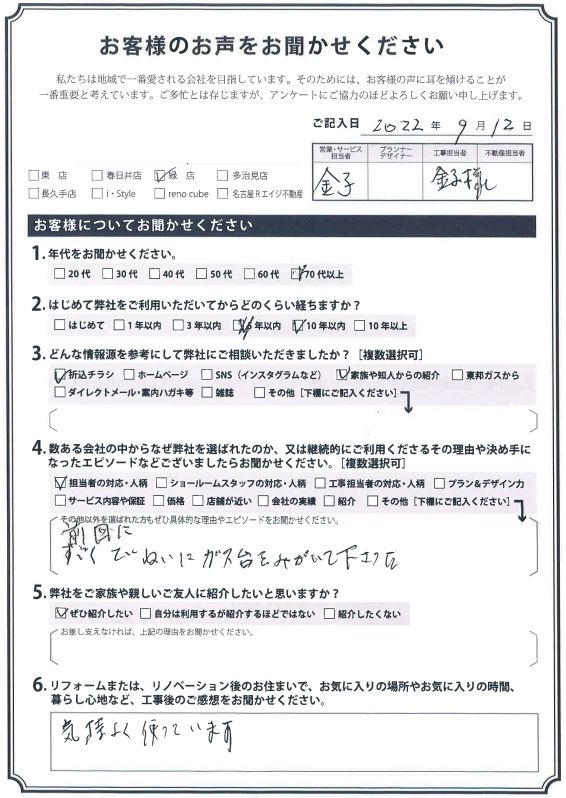 お客様のお声をお聞かせください
私たちは地域で一番愛される会社を目指しています。そのためには、お客様の声に耳を傾けることが
一番重要と考えています。ご多忙とは存じますが、アンケートにご協力のほどよろしくお願い申し上げます。
ご記入日 2022年 9月12日
営業・サービス担当者 プランナーデザイナー 工事担当者 不動産担当者
金子 金子様
□東 店 □春日井店 ☑緑 店 □多治見店
□長久手店 □i・Style □reno cube □名古屋Rエイジ不動産
お客様についてお聞かせください
1.年代をお聞かせください。
□20代 □30代 □40代 □50代 □60代 ☑70代以上
2.はじめて弊社をご利用いただいてからどのくらい経ちますか?
□はじめて □1年以内 □3年以内 5年以内 ☑10年以内 □10年以上
3.どんな情報源を参考にして弊社にご相談いただきましたか?[複数選択可]
☑折込チラシ □ホームページ □SNS(インスタグラムなど) ☑家族や知人からの紹介 □東邦ガスから
□ダイレクトメール・案内ハガキ等 □雑誌 □その他[下欄にご記入ください]
4.数ある会社の中からなぜ弊社を選ばれたのか、又は継続的にご利用くださるその理由や決め手に
なったエピソードなどございましたらお聞かせください。[複数選択可]
☑担当者の対応・人柄 □ショールームスタッフの対応・人柄 □工事担当者の対応・人柄 □プラン&デザイン力
□サービス内容や保証 □価格 □店舗が近い □会社の実績 □紹介 □その他[下欄にご記入ください]
その他以外を選ばれた方もぜひ具体的な理由やエピソードをお聞かせください。
前回に
すごくていねいにガス台をみがいて下さった
5.弊社をご家族や親しいご友人に紹介したいと思いますか?
☑ぜひ紹介したい □自分は利用するが紹介するほどではない □紹介したくない
お差し支えなければ、上記の理由をお聞かせください。
6.リフォームまたは、リノベーション後のお住まいで、お気に入りの場所やお気に入りの時間、
暮らし心地など、工事後のご感想をお聞かせください。
気持よく使っています